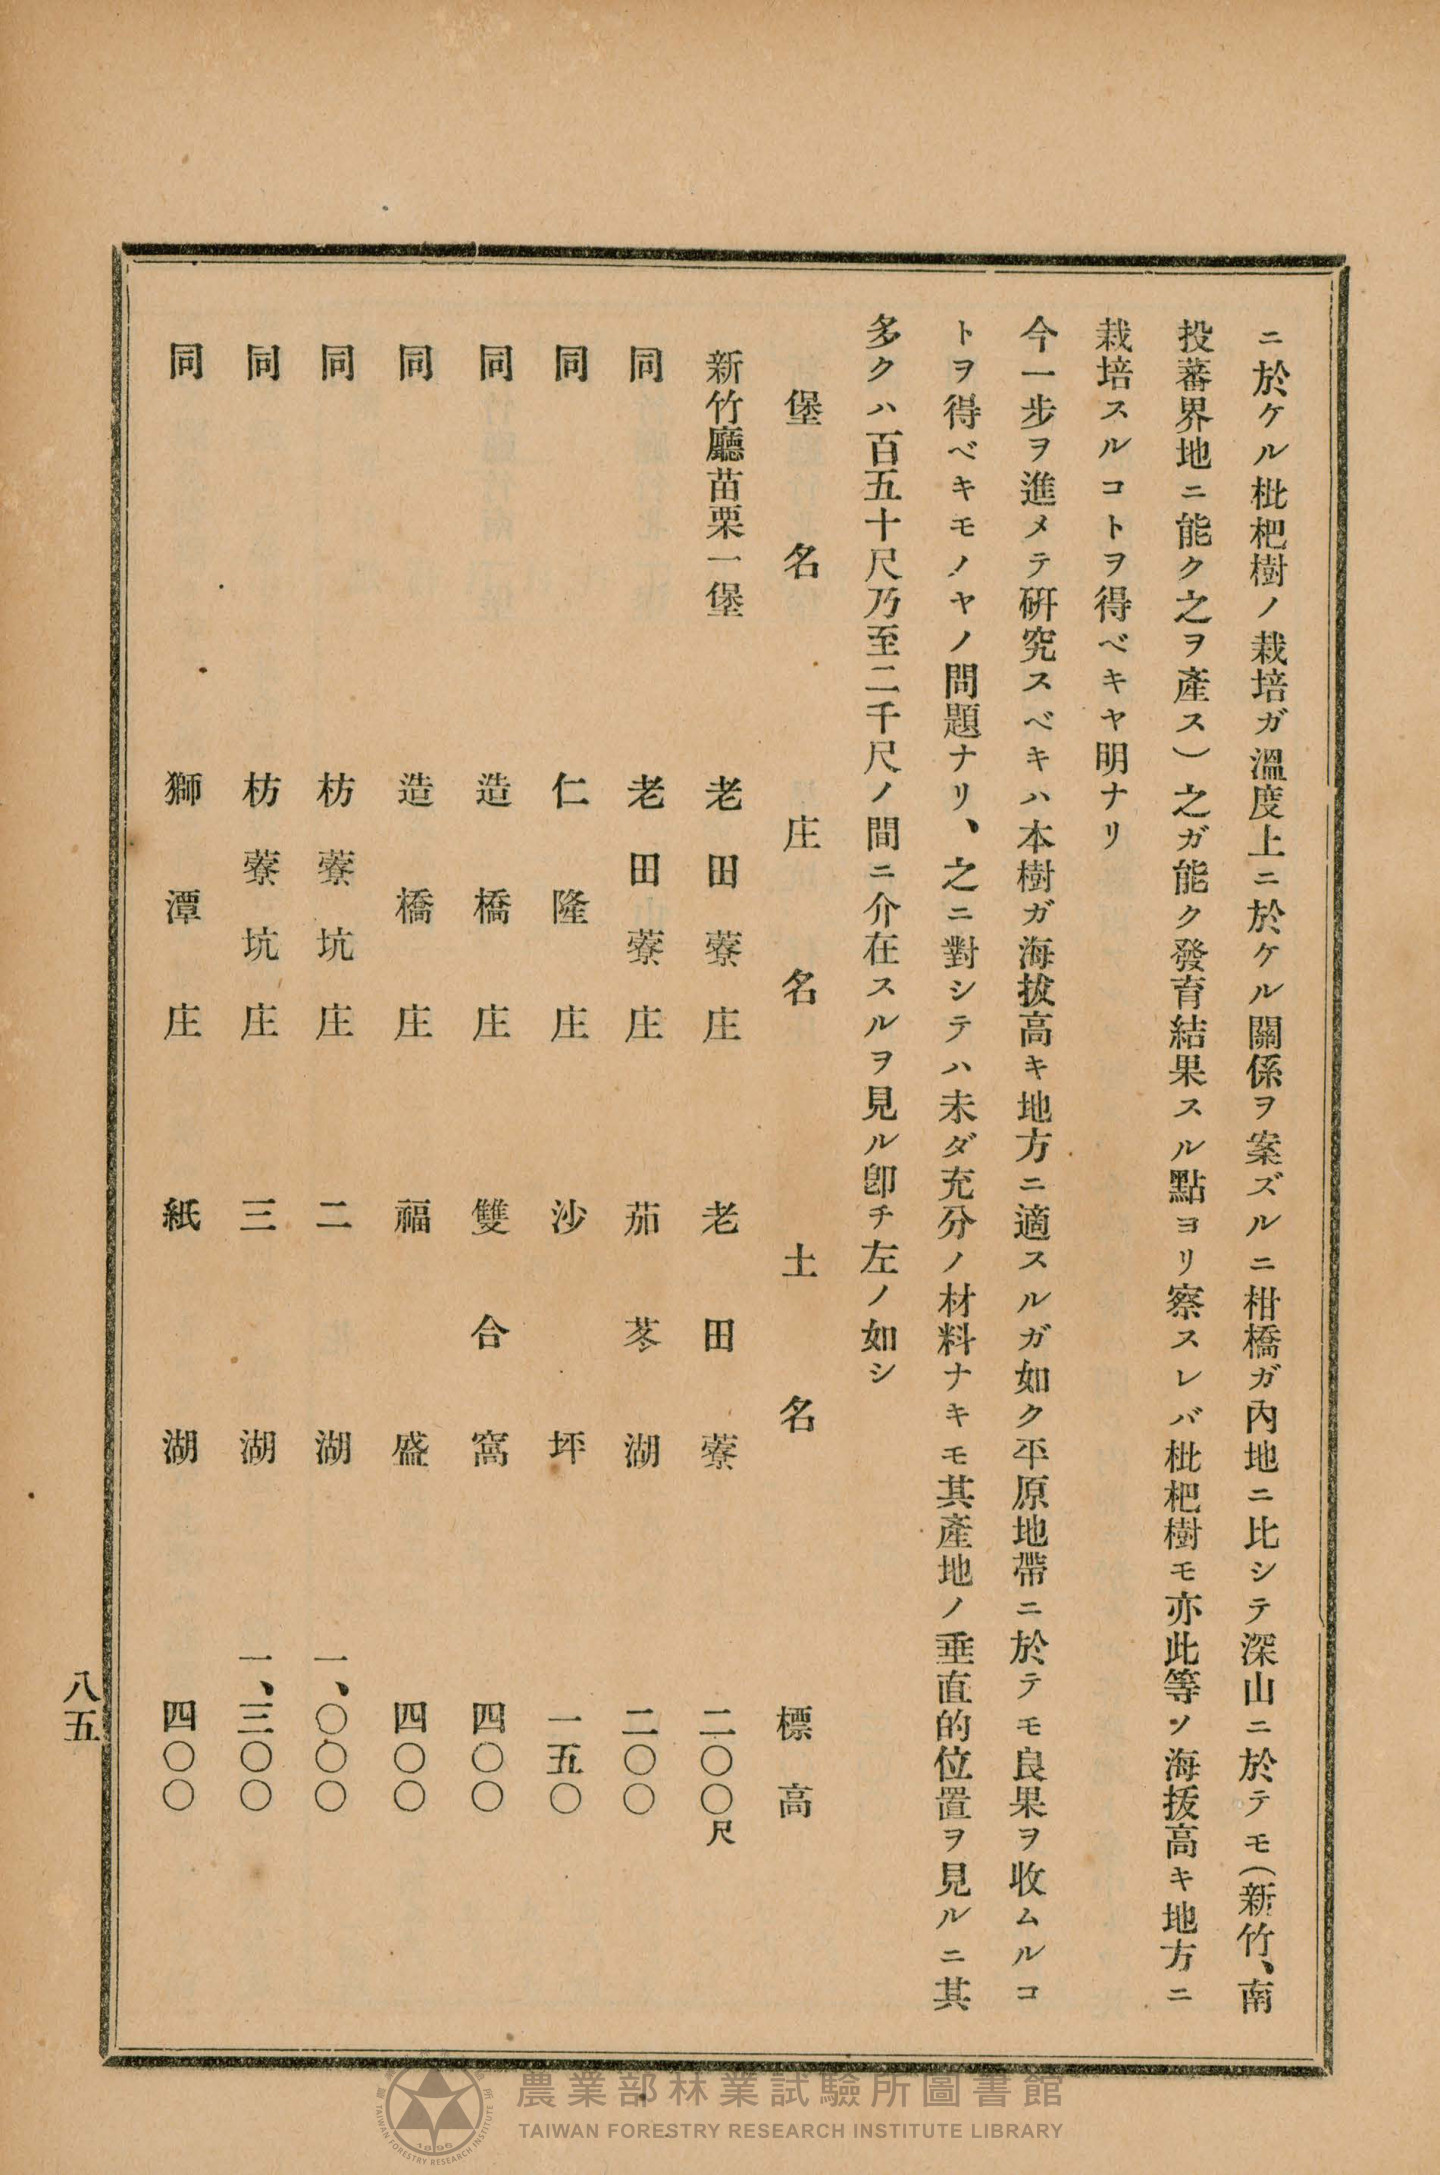 ニ於ケル枇杷樹ノ栽培ガ溫度上ニ於ケル關係ヲ案ズルニ柑橘ガ內地ニ比シテ深山ニ於テモ(新竹、南
投蕃界地ニ能ク之ヲ產ス)之ガ能ク發育結果スル點ヨリ察スレバ枇杷樹モ亦此等ソ海拔高キ地方ニ
栽培スルコトヲ得ベキヤ明ナリ
今一步ヲ進メテ硏究スベキハ本樹ガ海拔高キ地方ニ適スルガ如ク平原地帶ニ於テモ良果ヲ收ムルコ
トヲ得ベキモノヤノ問題ナリ、之ニ對シテハ未ダ充分ノ材料ナキモ其產地ノ垂直的位置ヲ見ルニ其
多クハ百五十尺乃至二千尺ノ間ニ介在スルヲ見ル卽チ左ノ如シ
堡名 庄名 土名 標高
新竹廳苗栗一堡 老田藔庄 老田藔 二〇〇尺
同 老田藔庄 茄苳湖 二〇〇
同 仁隆庄 沙坪 一五〇
同 造橋庄 雙合窩 四〇〇
同 造橋庄 福盛 四〇〇
同 枋藔坑庄 二湖 一、〇〇〇
同 枋藔坑庄 三湖 一、三〇〇
同 獅潭庄 紙湖 四〇〇
八五
農業部林業試驗所圖書館
TAIWAN FORESTRY RESEARCH INSTITUTE LIBRARY